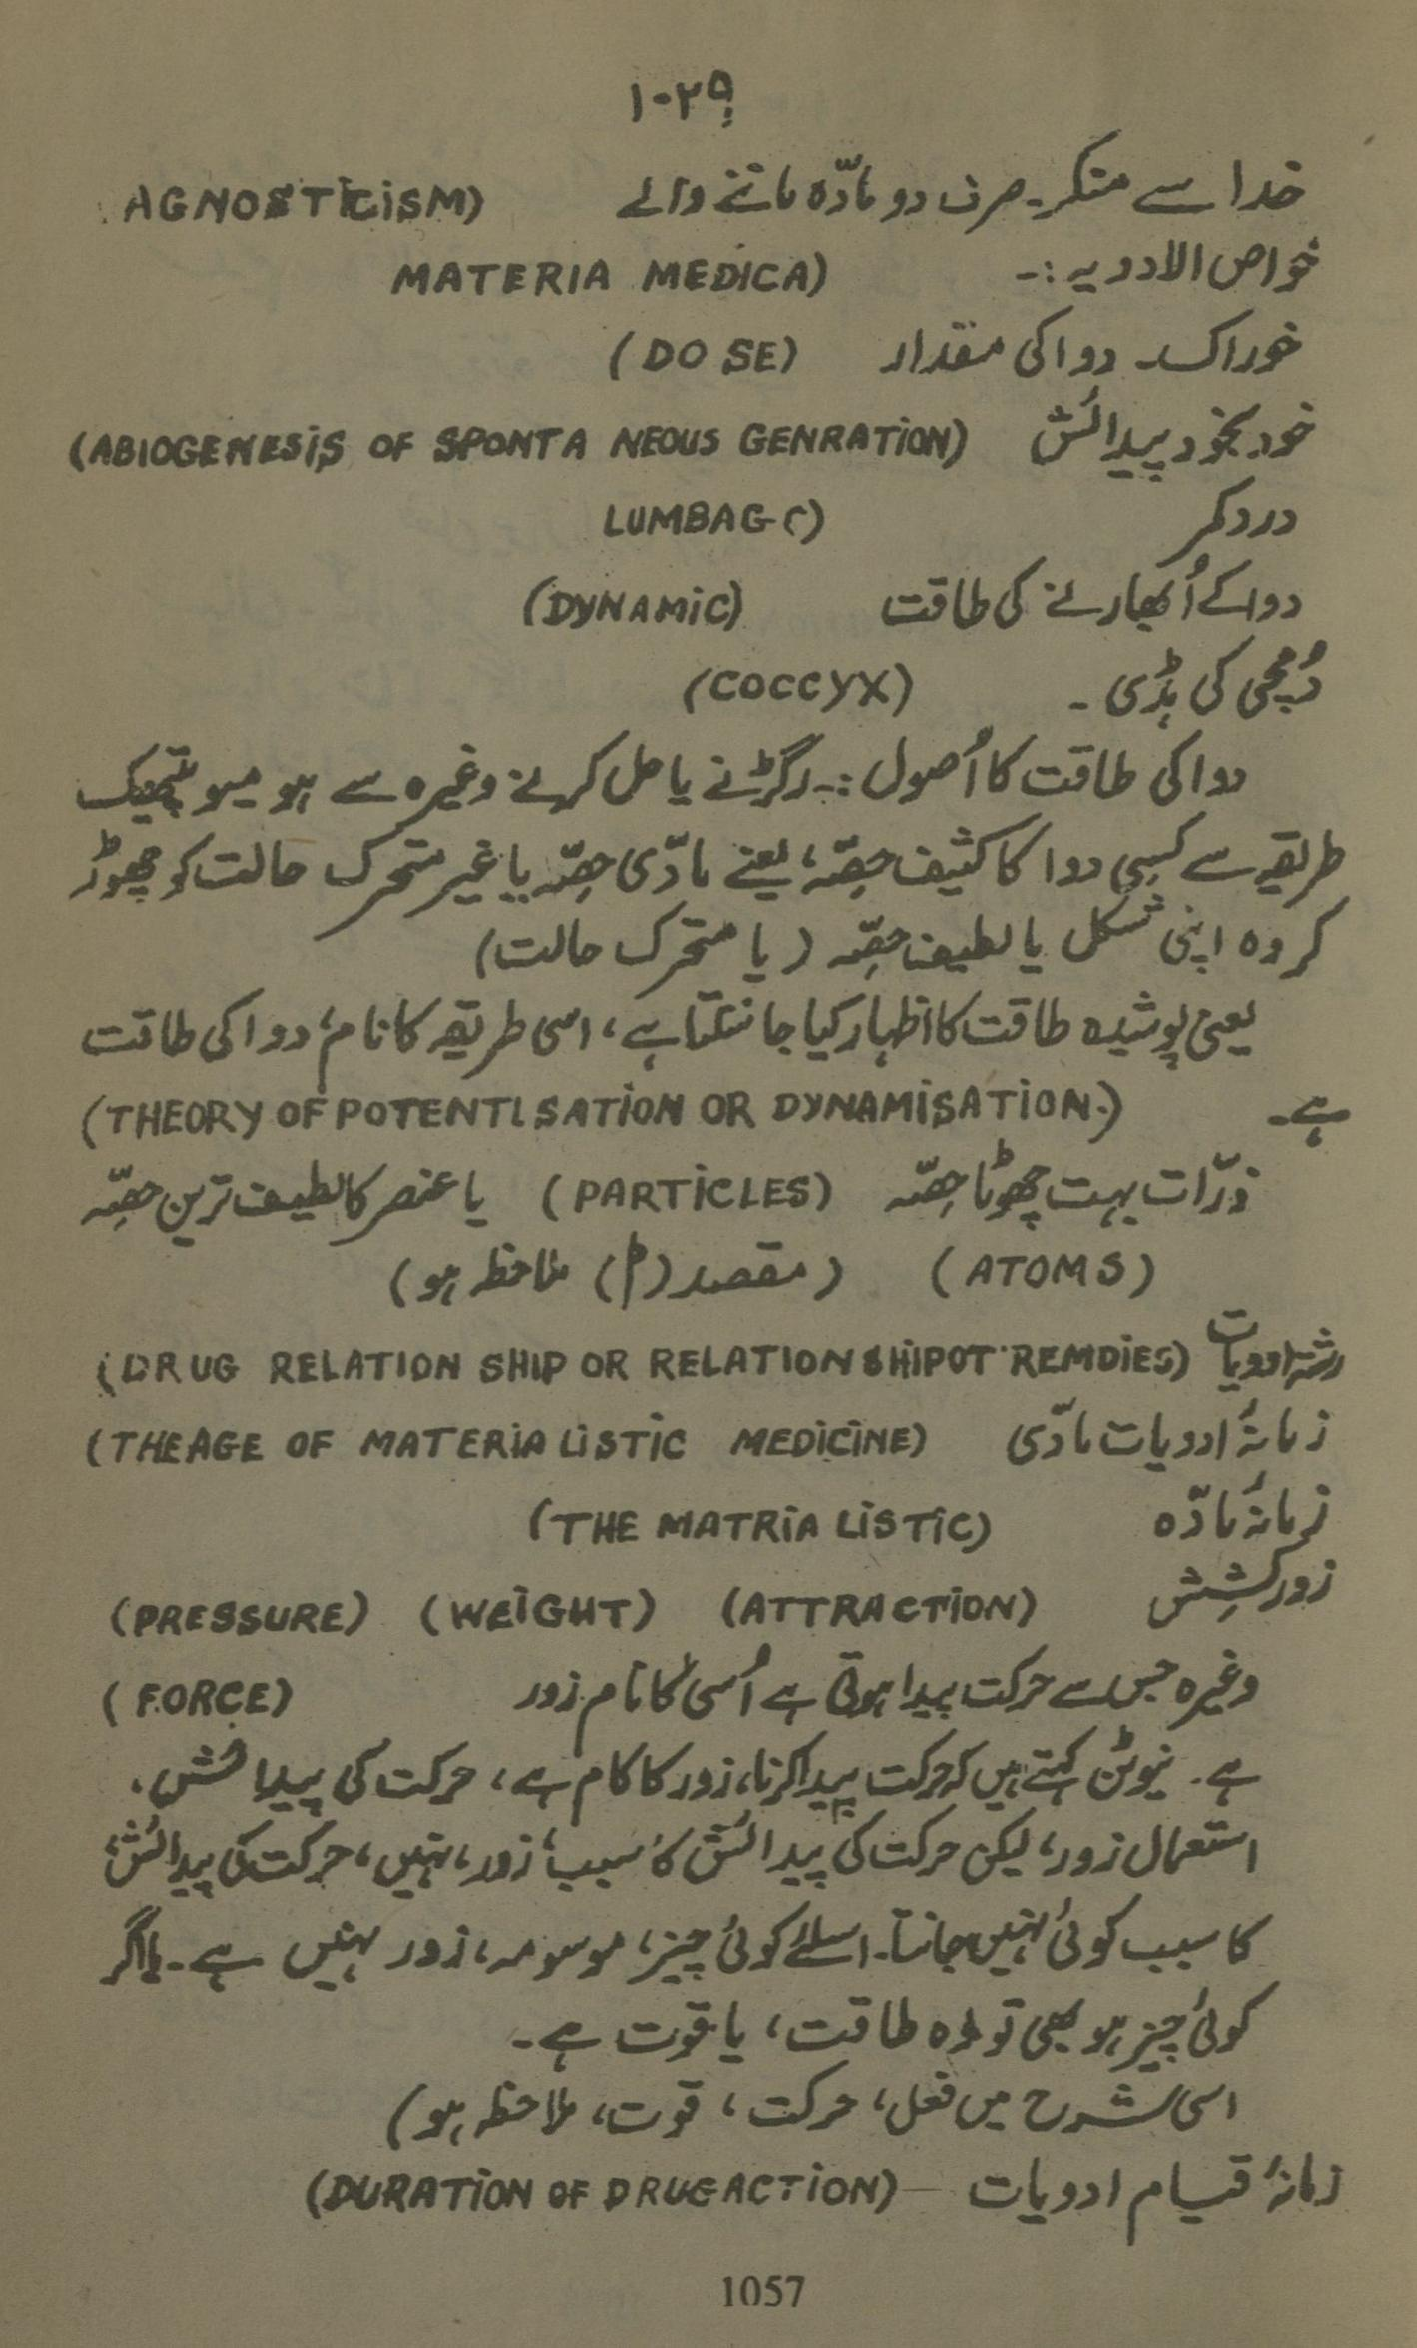 ۱۰۲۹
خدا سے منکر۔ صرف دو مادّہ ماننے والے AGNOSTICISM)
خواص الادویہ :۔ MATERIA MEDICA)
خوراک۔ دوا کی مقدار (DOSE)
خود بخود پیدائش (ABIOGENESIS OF SPONTA NEOUS GENRATION)
درد کمر LUMBAGO)
دوا کے اُبھارنے کی طاقت (DYNAMIC)
دُمچی کی ہڈی ۔ (COCCYX)
دوا کی طاقت کا اُصول :۔ رگڑنے یا حل کرنے وغیرہ سے ہو میو پیتھیک
طریقہ سے کسی دوا کا کثیف حصّہ، یعنے مادّی حصّہ یا غیر متحرک حالت کو چھوڑ
کر وہ اپنی شکل یا لطیف حصّہ (یا متحرک حالت)
یعنی پوشیدہ طاقت کا اظہار کیا جا سکتا ہے، اسی طریقہ کا نام، دوا کی طاقت
ہے۔ (THEORY OF POTENTISATION OR DYNAMISATION.)
ذرّات بہت چھوٹا حصّہ (PARTICLES) یا عنصر کا لطیف ترین حصّہ
(ATOMS) (مقصد () ملاحظہ ہو)
رشتہ ادویات (DRUG RELATION SHIP OR RELATIONSHIPOT REMDIES)
زمانۂ ادویات مادّی (THEAGE OF MATERIA LISTIC MEDICINE)
زمانۂ مادّہ (THE MATRIA LISTIC)
زور کشِش (ATTRACTION) (WEIGHT) (PRESSURE)
وغیرہ جس سے حرکت پیدا ہوتی ہے اُسی کا نام زور (FORCE)
ہے۔ نیوٹن کہتے ہیں کہ حرکت پیدا کرنا، زور کا کام ہے، حرکت کی پیدائش،
استعمال زور، لیکن حرکت کی پیدائش کا سبب، زور، نہیں، حرکت کی پیدائش،
کا سبب کوئی نہیں جانتا۔ اسلئے کوئی چیز، موسومہ، زور نہیں ہے۔ ہاں اگر
کوئی چیز ہو بھی تو وہ طاقت، یا قوت ہے۔
اسی شرح میں فعل، حرکت، قوت، ملاحظہ ہو)
زمانۂ قیام ادویات (DURATION OF DRUG ACTION)
1057